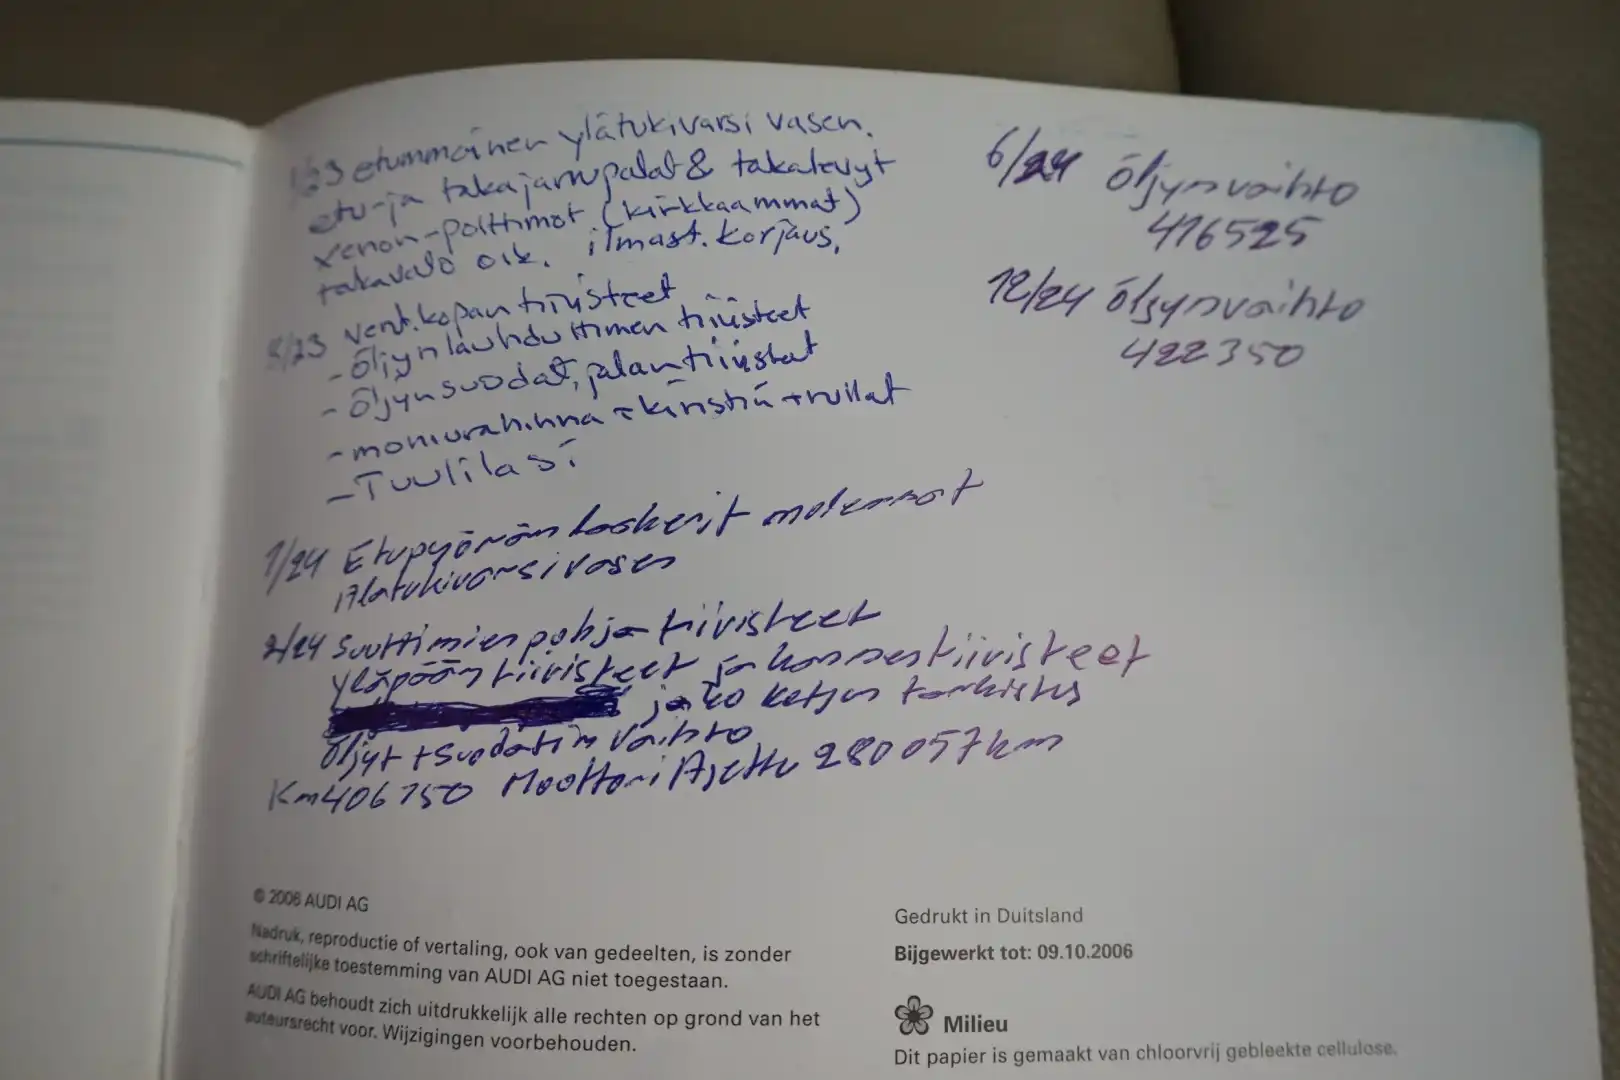 1/23 etummainen ylätukivarsi vasen.
etu-ja takajarrupalat & takalevyt
xenon-polttimot (kirkkaammat)
takavalo oik. ilmast. korjaus.
8/23 vent.kopan tiivisteet
- öljynlauhduttimen tiivisteet
- öljynsuodat. jalan tiivisteet
- moniurahihna + kiristin + rullat
- Tuulilasi
1/24 Etupyörän laakerit molemmat
Alatukivarsi vasen
2/24 Suuttimien pohja tiivisteet
Yläpään tiivisteet ja kannen tiivisteet
jako ketjun tarkistus
Öljyt + suodatin vaihto
Km 406 750 Moottori Ajettu 280 057 km
6/24 Öljynvaihto
416525
12/24 Öljynvaihto
422350
© 2006 AUDI AG
Nadruk, reproductie of vertaling, ook van gedeelten, is zonder
schriftelijke toestemming van AUDI AG niet toegestaan.
AUDI AG behoudt zich uitdrukkelijk alle rechten op grond van het
auteursrecht voor. Wijzigingen voorbehouden.
Gedrukt in Duitsland
Bijgewerkt tot: 09.10.2006
Milieu
Dit papier is gemaakt van chloorvrij gebleekte cellulose.